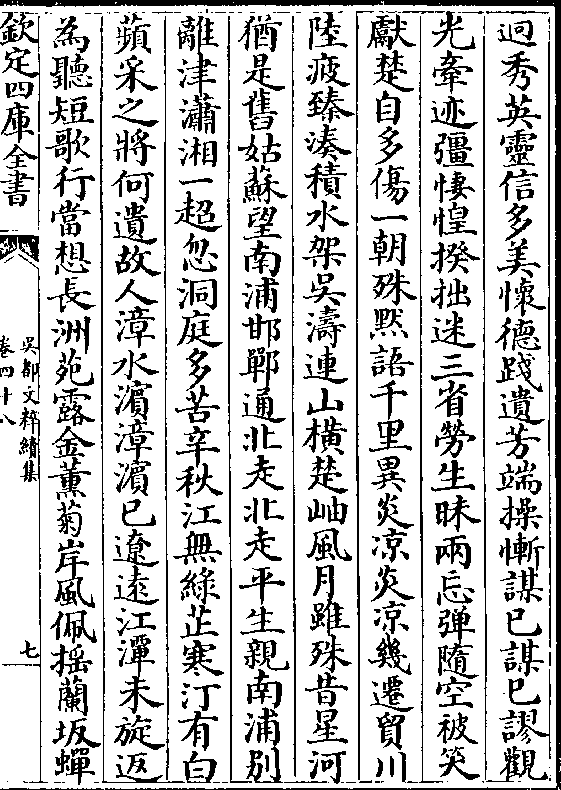 迥秀英靈信多美懷德踐遺芳端操慚謀已謀已謬觀
光牽迹彊悽惶揆拙迷三省勞生昧兩忘彈隨空被笑
獻楚自多傷一朝殊黙語千里異炎凉炎凉幾遷貿川
陸疲臻湊積水架吳濤連山橫楚岫風月雖殊昔星河
猶是舊姑蘇望南浦邯鄲通北走北走平生親南浦別
離津瀟湘一超忽洞庭多苦辛秋江無綠芷寒汀有白
蘋采之將何遺故人漳水濵漳濵已遼遠江潭未旋返
為聽短歌行當想長洲苑露金薰菊岸風佩揺蘭坂蟬
欽定四庫全書
吳都文粹續集
卷四十八
七